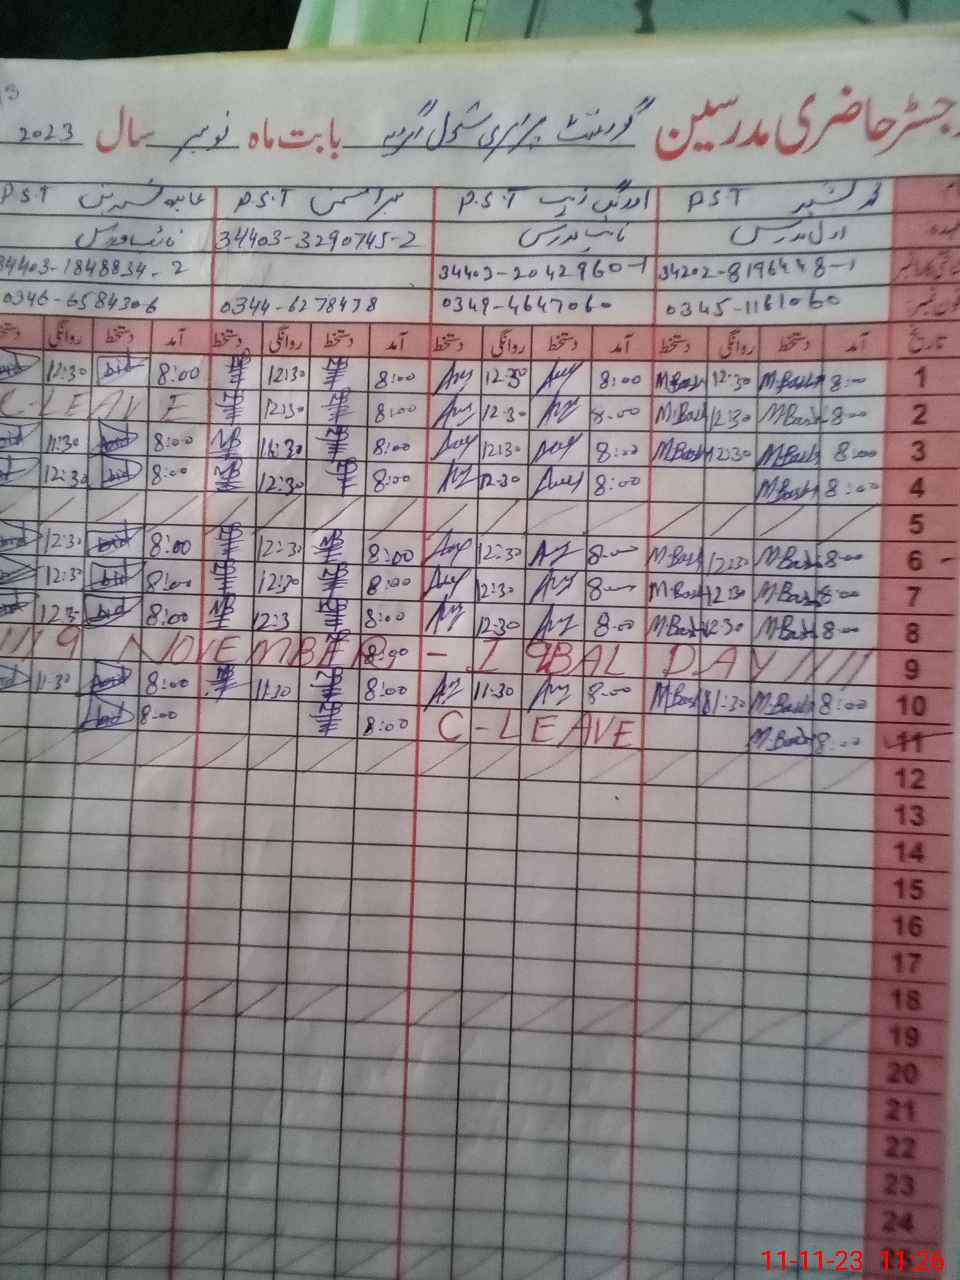 رجسٹر حاضری مدرسین گورنمنٹ پرائمری سکول بابت ماہ نومبر سال 2023
محمد بشیر P.S.T اورنگ زیب P.S.T P.S.T P.S.T
اول مدرس نائب مدرس 34403-3290745-2 نائب مدرس
34202-8196448-1 34403-2042960-1 34403-1848834-2
0345-1161060 0349-4647060 0344-6278478 0346-6584306
تاریخ آمد دستخط روانگی دستخط آمد دستخط روانگی دستخط آمد دستخط روانگی دستخط آمد دستخط روانگی
1 8:00 M.Bash 12:30 M.Bash 8:00 12:30 8:00 12:30 8:00 12:30
2 8:00 M.Bash 12:30 M.Bash 8:00 12:30 8:00 12:30 C-LEAVE
3 8:00 M.Bash 12:30 M.Bash 8:00 12:30 8:00 11:30 8:00 11:30
4 8:00 M.Bash 8:00 12:30 8:00 12:30 8:00 12:30
5
6 8:00 M.Bash 12:30 M.Bash 8:00 12:30 8:00 12:30 8:00 12:30
7 8:00 M.Bash 12:30 M.Bash 8:00 12:30 8:00 12:30 8:00 12:30
8 8:00 M.Bash 12:30 M.Bash 8:00 12:30 8:00 12:3 8:00 12:30
9 9 NOVEMBER - IQBAL DAY 8:00
10 8:00 M.Bash 11:30 M.Bash 8:00 11:30 8:00 11:30 8:00 11:30
11 8:00 M.Bash C-LEAVE 8:00 8:00
12
13
14
15
16
17
18
19
20
21
22
23
24
11-11-23 11:26